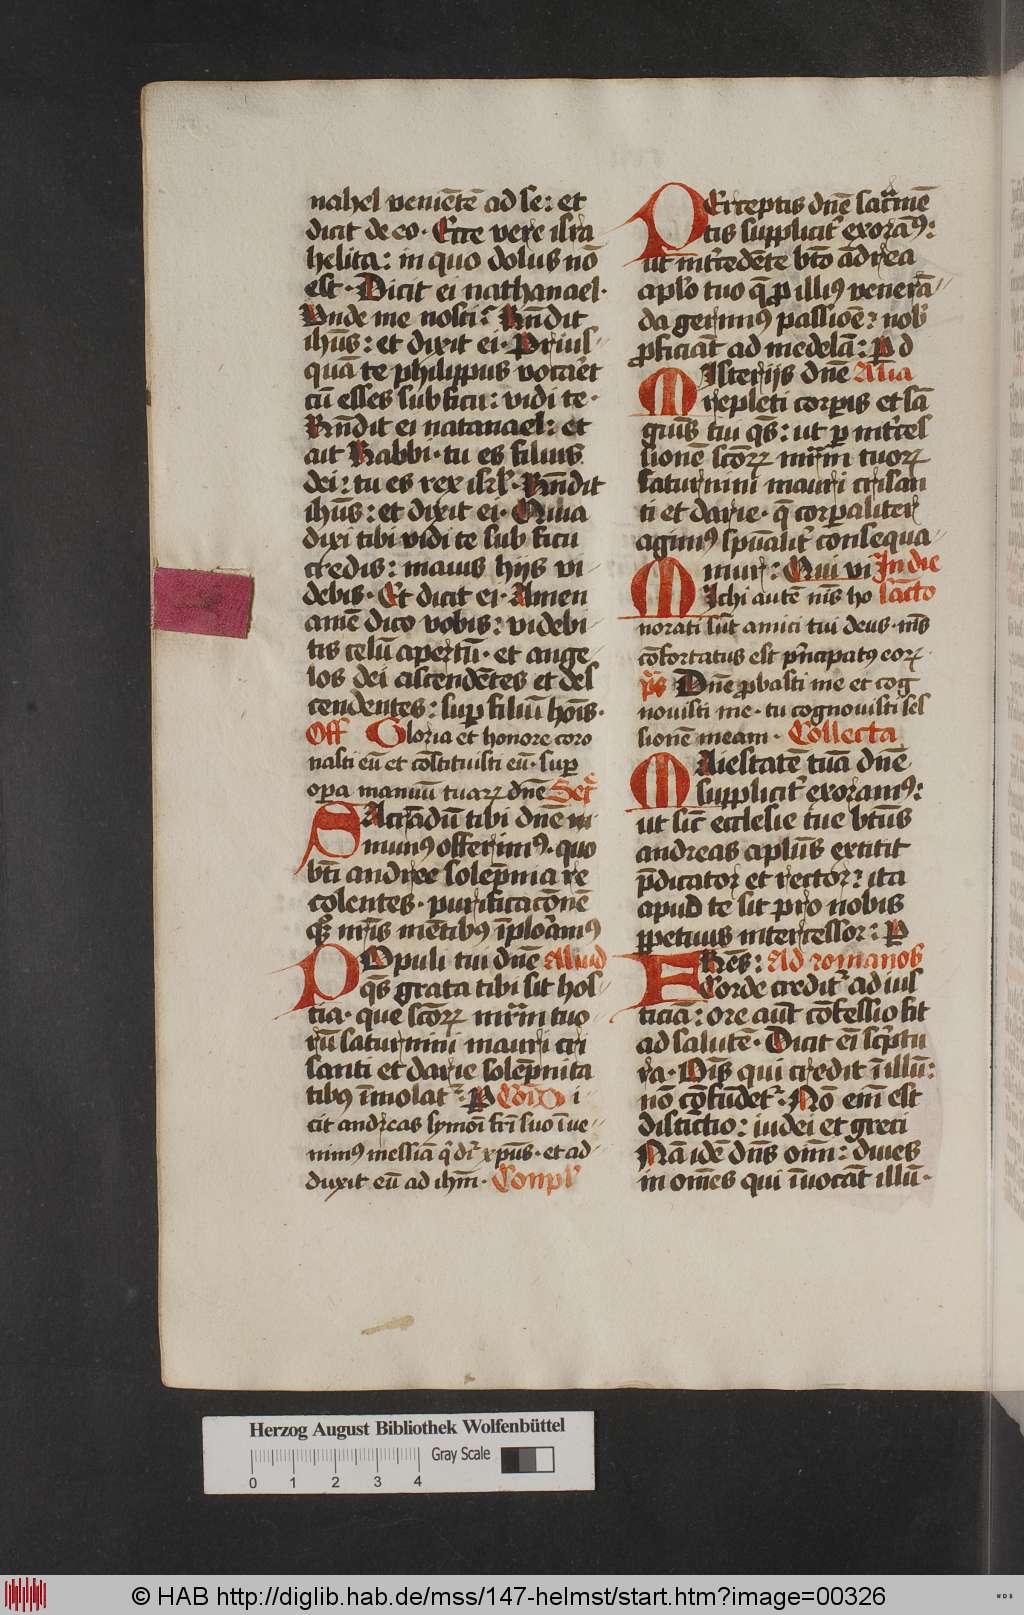 nahel veniētē ad se: et
dicit de eo. Ecce vere isra
helita: in quo dolus nō
est. Dicit ei nathanael.
Unde me nosti: Rn̄dit
ihūs: et dixit ei. Prius
quā te philippus vocaret
cū esses sub ficu: vidi te.
Rn̄dit ei natanael: et
ait Rabbi. tu es filius
dei: tu es rex isrł. Rn̄dit
ihūs: et dixit ei. Quia
dixi tibi vidi te sub ficu
credis: maius hijs vi-
debis. Et dicit ei. Amen
amē dico vobis: videbi-
tis celū apertū. et ange-
los dei ascendētes et des
cendentes: sup filiū hoīs.
Off Gloria et honore coro
nasti eū et cōstituisti eū. sup
opa manuū tuaꝝ dnē Secr
SAcrādū tibi dnē
munꝰ offerimꝰ. quo
bti andree solepnia re
colentes. purificacōnē
qꝫ nr̄is mētibꝰ īplōramꝰ
POpuli tui dnē Aliud
qs̄ grata tibi sit hos-
tia. que scōꝝ mr̄m tuo
rū saturnini mauri cri
santi et darie solēpnita
tibꝰ īmolat. P Cōio Di-
cit andreas symoni fri suo īve-
nimus messiā q̄ dr xpūs. et ad-
duxit eū ad ihm. Conpl
PErceptis dnē sacrmē
tis supplicit exoramꝰ:
ut intcedēte bto andrea
aplo tuo q̄ ꝓ illiꝰ venerā-
da gerimꝰ passiōe: nob
ꝓficiāt ad medelā: P d
MIsterijs dnē Alia
repleti corpis et sā
guīs tui qs̄: ut p intrces
sionē scōꝝ mr̄m tuoꝝ
saturnini mauri crisan
ti et darie. q̄ corpaliter
agimꝰ spūalit consequa-
mur: Qui vi In die
MIchi autē nīs ho sācto
norati sūt amici tui deus. nīs
cōfortatus est pncipatꝰ eoꝝ.
ps Dnē ꝓbasti me et cog
novisti me. tu cognovisti ses
sionē meam. Collecta
MAiestatē tuā dnē
supplicit exoramꝰ:
ut sic ecclesie tue btūs
andreas aplūs extitit
p̄dicator et rector: ita
apud te sit pro nobis
ppetuus intercessor: P
FRēs: Ad romanos
Corde credit ad ius
ticiā: ore aut cōfessio fit
ad salutē. Dicit eī scptu
ra. Oīs qui credit ī illū:
nō cōfūdet: Nō enī est
distīctio: iudei et greci
Nā idē dns oīm: dives
in oīnes qui īvocāt illū.
Herzog August Bibliothek Wolfenbüttel
Gray Scale
0 1 2 3 4
© HAB http://diglib.hab.de/mss/147-helmst/start.htm?image=00326